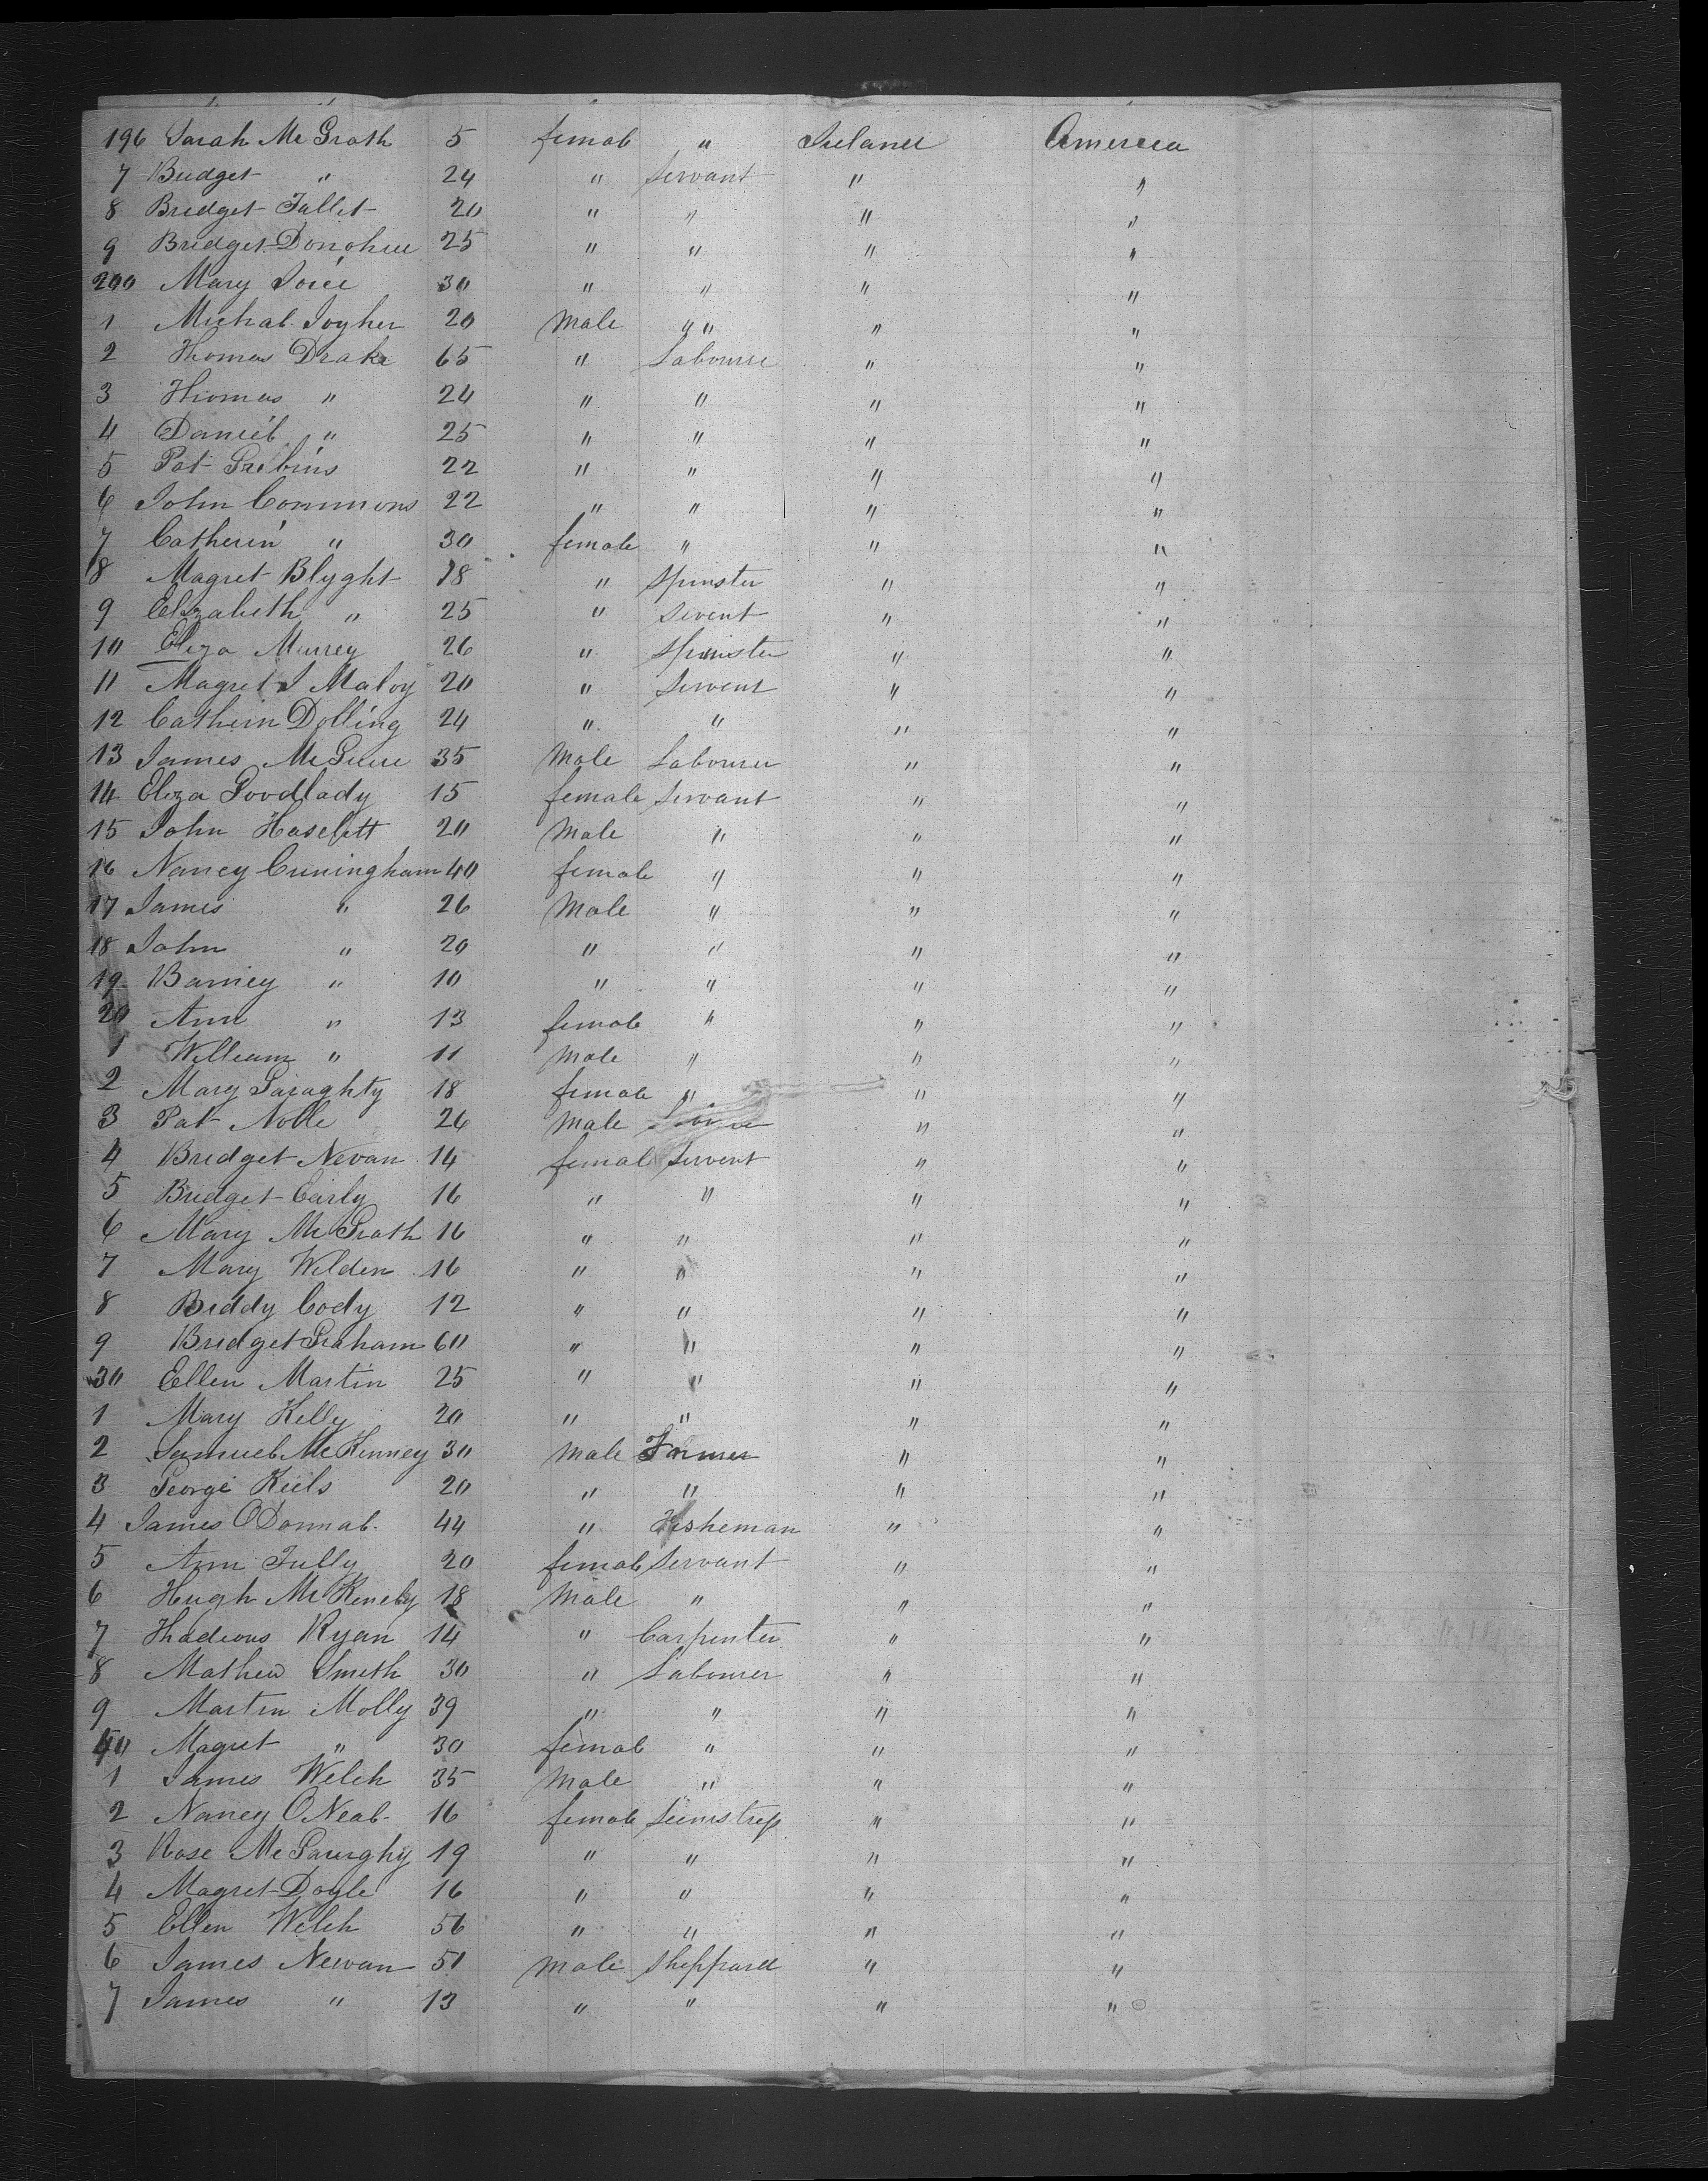 196 Sarah Mc Grath 5 femal " Ireland America
7 Bridget " 24 " Servant " "
8 Bridget Tallet 20 " " " "
9 Bridget Donohue 25 " " " "
200 Mary 30 " " " "
1 Michal Joyher 20 Male " " " "
2 Thomas Drake 65 " Labourre " "
3 Thomas " 24 " " " "
4 Daniel " 25 " " " "
5 Pat Gribins 22 " " " "
6 John Commons 22 " " " "
7 Catherin " 30 female " " "
8 Magret Blyght 18 " Spinster " "
9 Elizabeth " 25 " Servent " "
10 Eliza Murrey 26 " Spinster " "
11 Magret Maloy 20 " Servent " "
12 Cathein Dolling 24 " " " "
13 James Mc Guire 35 Male Labourer " "
14 Eliza Goodlady 15 female Servant " "
15 John Haselett 20 Male " " "
16 Nancy Cuningham 40 female " " "
17 James " 26 Male " " "
18 John " 20 " " " "
19 Barney " 10 " " " "
20 Ann " 13 female " " "
1 William " 11 Male " " "
2 Mary Garaghty 18 female " " "
3 Pat Nolle 26 Male " "
4 Bridget Nevan 14 femal Servent " "
5 Bridget Carly 16 " " " "
6 Mary Mc Grath 16 " " " "
7 Mary Wilden 16 " " " "
8 Biddy Cody 12 " " " "
9 Bridget Graham 60 " " " "
30 Ellen Martin 25 " " " "
1 Mary Kelly 20 " " " "
2 Samuel Mc Kinney 30 Male Farmer " "
3 George Keils 20 " " " "
4 James O Donnal 44 " Fisheman " "
5 Ann Tully 20 femal Servant " "
6 Hugh Mc Kenely 18 Male " " "
7 Thadeous Ryan 14 " Carpenter " "
8 Mathew Smith 30 " Labourer " "
9 Martin Molly 39 " " " "
40 Magret " 30 femal " " "
1 James Welch 35 Male " " "
2 Nancy O Neal 16 female Seemstress " "
3 Rose Mc Gaurghy 19 " " " "
4 Magret Doyle 16 " " " "
5 Ellen Welch 56 " " " "
6 James Newan 51 Male Sheppard " "
7 James " 13 " " " "